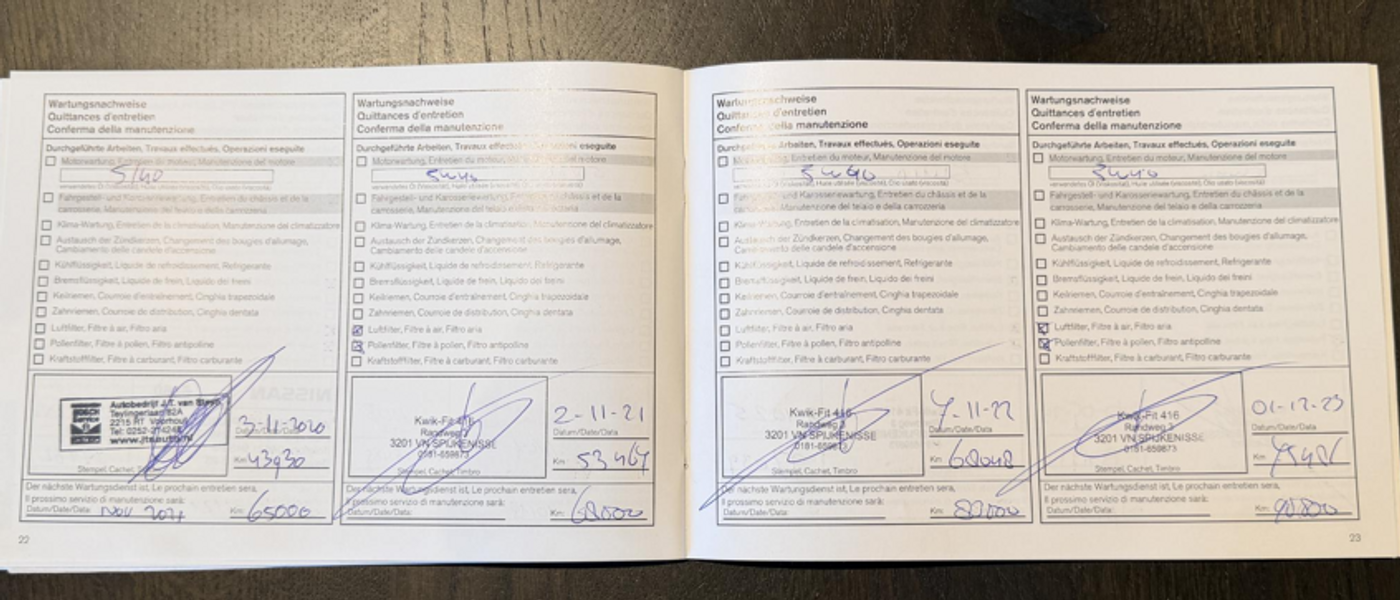 Wartungsnachweise
Quittances d'entretien
Conferma della manutenzione
Durchgeführte Arbeiten, Travaux effectués, Operazioni eseguite
Motorwartung, Entretien du moteur, Manutenzione del motore
5W40
verwendetes Öl (Viskosität), Huile utilisée (viscosité), Olio usato (viscosità)
Fahrgestell- und Karosseriewartung, Entretien du châssis et de la
carrosserie, Manutenzione del telaio e della carrozzeria
Klima-Wartung, Entretien de la climatisation, Manutenzione del climatizzatore
Austausch der Zündkerzen, Changement des bougies d'allumage,
Cambiamento delle candele d'accensione
Kühlflüssigkeit, Liquide de refroidissement, Refrigerante
Bremsflüssigkeit, Liquide de frein, Liquido dei freini
Keilriemen, Courroie d'entraînement, Cinghia trapezoidale
Zahnriemen, Courroie de distribution, Cinghia dentata
Luftfilter, Filtre à air, Filtro aria
Pollenfilter, Filtre à pollen, Filtro antipolline
Kraftstofffilter, Filtre à carburant, Filtro carburante
BOSCH
Service
Autobedrijf J.T. van Steyn
Teylingerlaan 82A
2215 RT Voorhout
Tel: 0252-
www.jtsauto.nl
3-11-2020
Datum/Date/Data
Km: 43930
Stempel, Cachet, Timbro
Der nächste Wartungsdienst ist, Le prochain entretien sera,
Il prossimo servizio di manutenzione sarà:
Datum/Date/Data: Nov 2021 Km: 65000
22
Wartungsnachweise
Quittances d'entretien
Conferma della manutenzione
Durchgeführte Arbeiten, Travaux effectués, Operazioni eseguite
Motorwartung, Entretien du moteur, Manutenzione del motore
5W40
verwendetes Öl (Viskosität), Huile utilisée (viscosité), Olio usato (viscosità)
Fahrgestell- und Karosseriewartung, Entretien du châssis et de la
carrosserie, Manutenzione del telaio e della carrozzeria
Klima-Wartung, Entretien de la climatisation, Manutenzione del climatizzatore
Austausch der Zündkerzen, Changement des bougies d'allumage,
Cambiamento delle candele d'accensione
Kühlflüssigkeit, Liquide de refroidissement, Refrigerante
Bremsflüssigkeit, Liquide de frein, Liquido dei freini
Keilriemen, Courroie d'entraînement, Cinghia trapezoidale
Zahnriemen, Courroie de distribution, Cinghia dentata
Luftfilter, Filtre à air, Filtro aria
Pollenfilter, Filtre à pollen, Filtro antipolline
Kraftstofffilter, Filtre à carburant, Filtro carburante
Kwik-Fit 416
Randweg 3
3201 VN SPIJKENISSE
0181-659873
2-11-21
Datum/Date/Data
Km: 53467
Stempel, Cachet, Timbro
Der nächste Wartungsdienst ist, Le prochain entretien sera,
Il prossimo servizio di manutenzione sarà:
Datum/Date/Data: Km: 68000
Wartungsnachweise
Quittances d'entretien
Conferma della manutenzione
Durchgeführte Arbeiten, Travaux effectués, Operazioni eseguite
Motorwartung, Entretien du moteur, Manutenzione del motore
5W40
verwendetes Öl (Viskosität), Huile utilisée (viscosité), Olio usato (viscosità)
Fahrgestell- und Karosseriewartung, Entretien du châssis et de la
carrosserie, Manutenzione del telaio e della carrozzeria
Klima-Wartung, Entretien de la climatisation, Manutenzione del climatizzatore
Austausch der Zündkerzen, Changement des bougies d'allumage,
Cambiamento delle candele d'accensione
Kühlflüssigkeit, Liquide de refroidissement, Refrigerante
Bremsflüssigkeit, Liquide de frein, Liquido dei freini
Keilriemen, Courroie d'entraînement, Cinghia trapezoidale
Zahnriemen, Courroie de distribution, Cinghia dentata
Luftfilter, Filtre à air, Filtro aria
Pollenfilter, Filtre à pollen, Filtro antipolline
Kraftstofffilter, Filtre à carburant, Filtro carburante
Kwik-Fit 416
Randweg 3
3201 VN SPIJKENISSE
0181-659873
7-11-22
Datum/Date/Data
Km: 68048
Stempel, Cachet, Timbro
Der nächste Wartungsdienst ist, Le prochain entretien sera,
Il prossimo servizio di manutenzione sarà:
Datum/Date/Data: Km: 83000
Wartungsnachweise
Quittances d'entretien
Conferma della manutenzione
Durchgeführte Arbeiten, Travaux effectués, Operazioni eseguite
Motorwartung, Entretien du moteur, Manutenzione del motore
5W40
verwendetes Öl (Viskosität), Huile utilisée (viscosité), Olio usato (viscosità)
Fahrgestell- und Karosseriewartung, Entretien du châssis et de la
carrosserie, Manutenzione del telaio e della carrozzeria
Klima-Wartung, Entretien de la climatisation, Manutenzione del climatizzatore
Austausch der Zündkerzen, Changement des bougies d'allumage,
Cambiamento delle candele d'accensione
Kühlflüssigkeit, Liquide de refroidissement, Refrigerante
Bremsflüssigkeit, Liquide de frein, Liquido dei freini
Keilriemen, Courroie d'entraînement, Cinghia trapezoidale
Zahnriemen, Courroie de distribution, Cinghia dentata
Luftfilter, Filtre à air, Filtro aria
Pollenfilter, Filtre à pollen, Filtro antipolline
Kraftstofffilter, Filtre à carburant, Filtro carburante
Kwik-Fit 416
Randweg 3
3201 VN SPIJKENISSE
0181-659873
01-12-23
Datum/Date/Data
Km:
Stempel, Cachet, Timbro
Der nächste Wartungsdienst ist, Le prochain entretien sera,
Il prossimo servizio di manutenzione sarà:
Datum/Date/Data: Km:
23